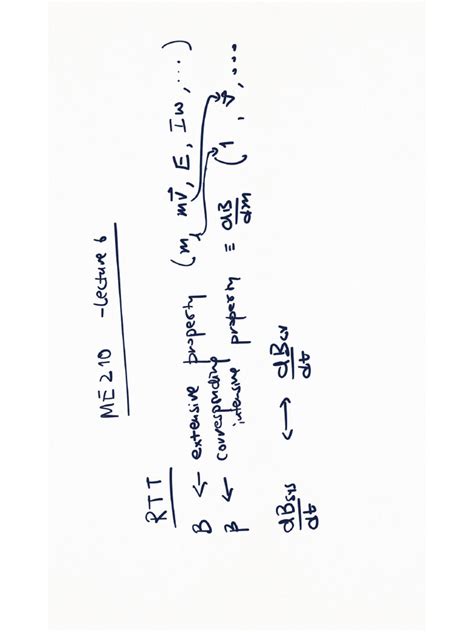 ME210 -Lecture 6
RTT
B ← extensive property (m, mv⃗, E, Iω, ...)
β ← corresponding intensive property ≡ dB/dm (1, v⃗, ...
dB_sys/dt ↔ dB_CV/dt